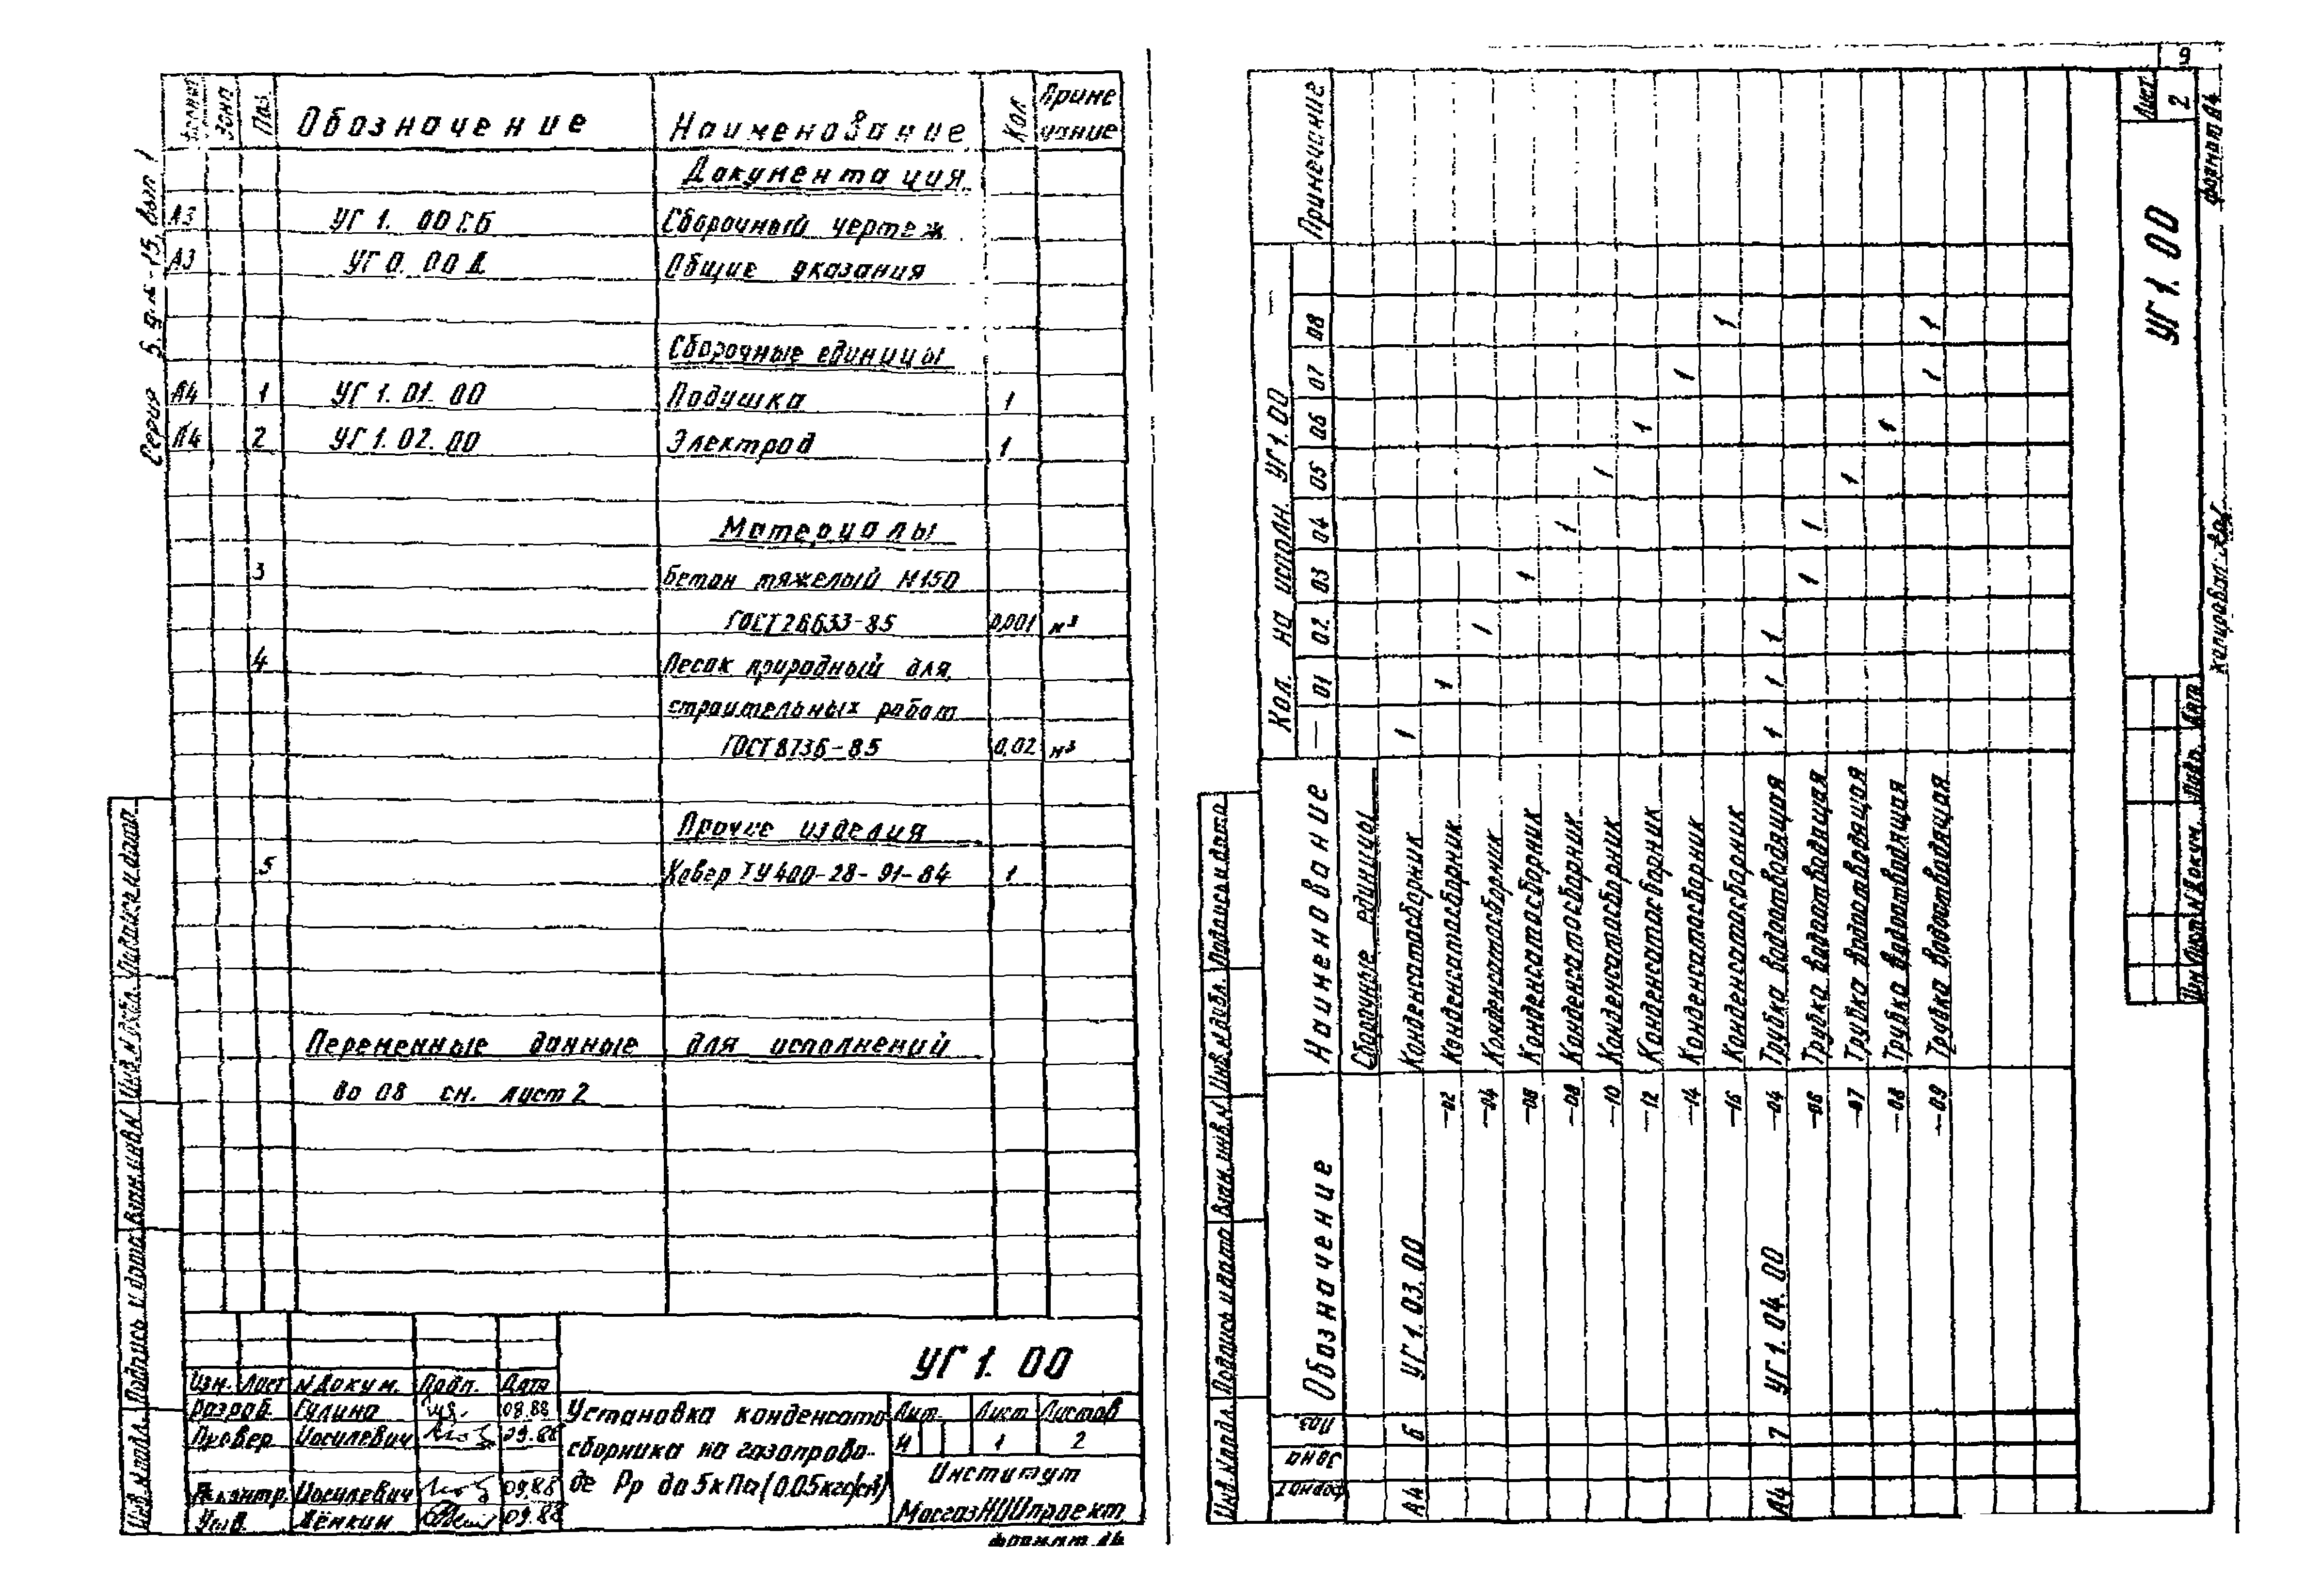 Серия 5.9.К-15, вып 1
Формат Зона Поз. Обозначение Наименование Кол Приме
чание
Документация
А3 УГ 1. 00 СБ Сборочный чертеж
А3 УГ 0. 00 Д Общие указания
Сборочные единицы
А4 1 УГ 1. 01. 00 Подушка 1
А4 2 УГ 1. 02. 00 Электрод 1
Материалы
3 Бетон тяжелый М150
ГОСТ 26633-85 0,001 м³
4 Песок природный для
строительных работ
ГОСТ 8736-85 0,02 м³
Прочие изделия
5 Ковер ТУ 400-28-91-84 1
Переменные данные для исполнений
во 08 см. лист 2
Инв. N подл. Подпись и дата Взам. инв. N Инв. N дубл. Подпись и дата
УГ 1. 00
Изм. Лист N Докум. Подп. Дата
Разраб. Гулина 09.88
Провер Иосилевич 09.88
Н.контр. Иосилевич 09.88
Утв. Лёнкин 09.88
Установка конденсато
сборника на газопрово-
де Рр до 5 кПа (0.05 кгс/см²)
Лит. Лист Листов
И 1 2
Институт
МосгазНИИпроект
Формат А4
9
Формат Зона Поз. Обозначение Наименование Кол. на исполн. УГ 1. 00 — Примечание
— 01 02 03 04 05 06 07 08
Сборочные единицы
А4 6 УГ 1. 03. 00 Конденсатосборник 1
—02 Конденсатосборник 1
—04 Конденсатосборник 1
—06 Конденсатосборник 1
—08 Конденсатосборник 1
—10 Конденсатосборник 1
—12 Конденсатосборник 1
—14 Конденсатосборник 1
—16 Конденсатосборник 1
А4 7 УГ 1. 04. 00 —04 Трубка водоотводящая 1 1 1
—06 Трубка водоотводящая 1 1
—07 Трубка водоотводящая 1
—08 Трубка водоотводящая 1
—09 Трубка водоотводящая 1 1
Инв. N подл. Подпись и дата Взам. инв. N Инв. N дубл. Подпись и дата
Изм Лист N Докум. Подп. Дата
УГ 1. 00
Лист
2
Копировал
Формат А4